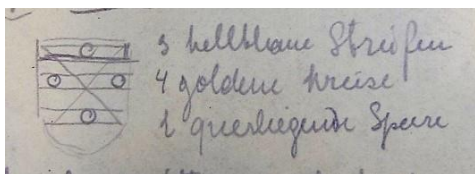 3 hellblaue Streifen
4 goldene Kreise
2 querliegende Speere